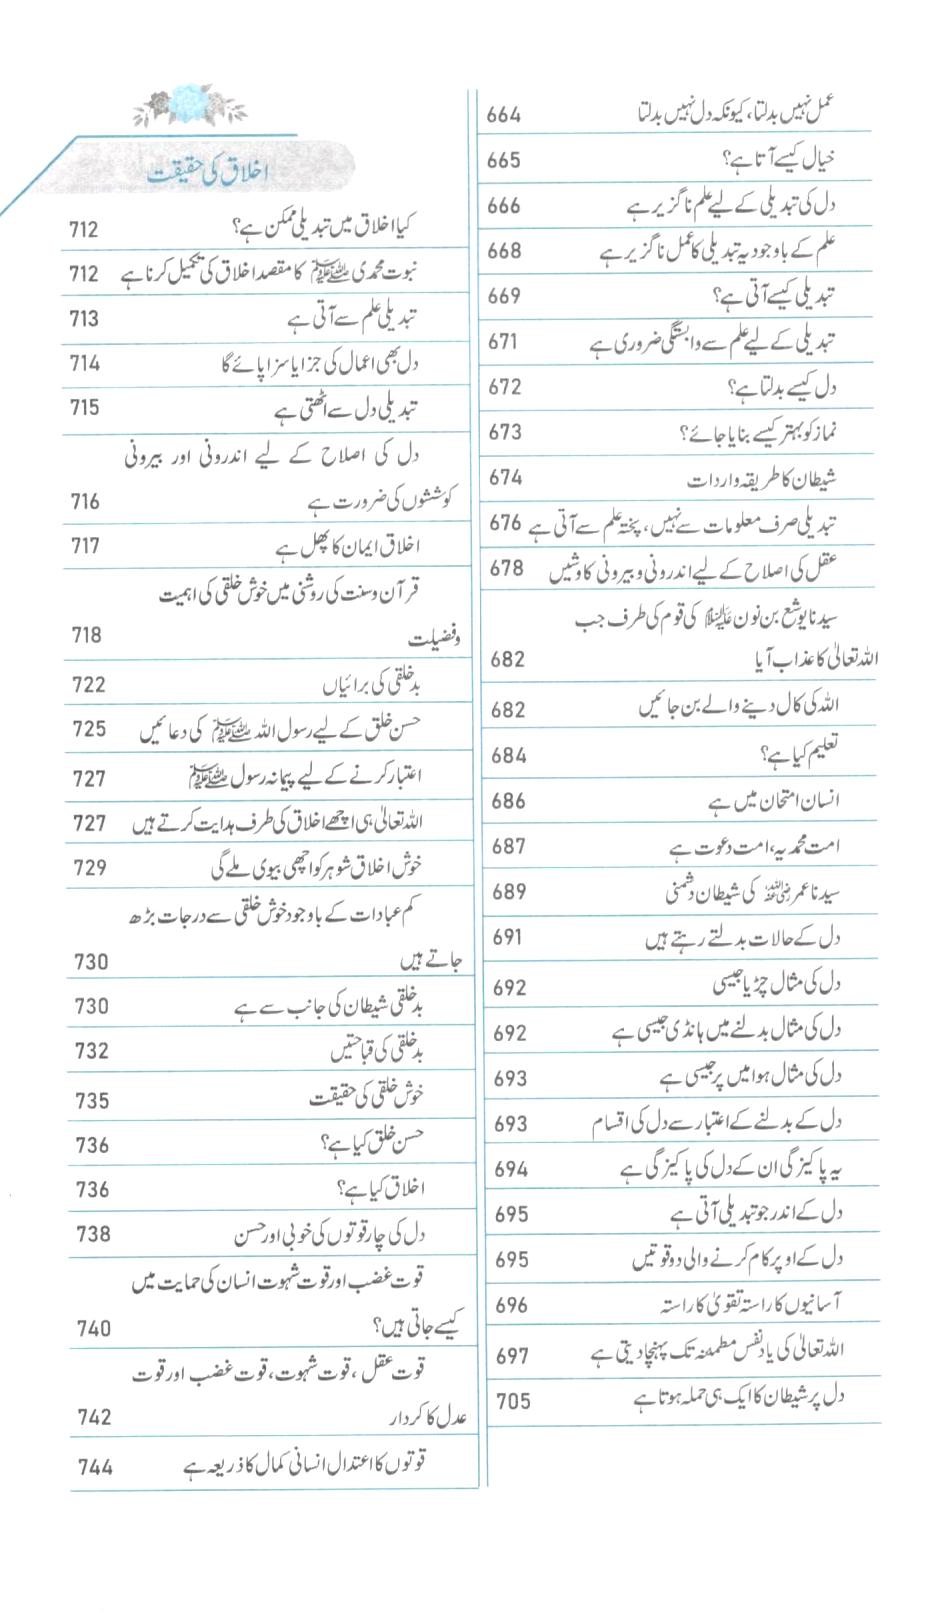 عمل نہیں بدلتا، کیونکہ دل نہیں بدلتا 664
خیال کیسے آتا ہے؟ 665
دل کی تبدیلی کے لیے علم ناگزیر ہے 666
علم کے باوجود یہ تبدیلی کا عمل ناگزیر ہے 668
تبدیلی کیسے آتی ہے؟ 669
تبدیلی کے لیے علم سے وابستگی ضروری ہے 671
دل کیسے بدلتا ہے؟ 672
نماز کو بہتر کیسے بنایا جائے؟ 673
شیطان کا طریقہ واردات 674
تبدیلی صرف معلومات سے نہیں، پختہ علم سے آتی ہے 676
عقل کی اصلاح کے لیے اندرونی و بیرونی کاوشیں 678
سیدنا یوشع بن نون علیہ السلام کی قوم کی طرف جب
اللہ تعالیٰ کا عذاب آیا 682
اللہ کی کال دینے والے بن جائیں 682
تعلیم کیا ہے؟ 684
انسان امتحان میں ہے 686
امت محمدیہ، امت دعوت ہے 687
سیدنا عمر رضی اللہ عنہ کی شیطان دشمنی 689
دل کے حالات بدلتے رہتے ہیں 691
دل کی مثال چڑیا جیسی 692
دل کی مثال بدلنے میں ہانڈی جیسی ہے 692
دل کی مثال ہوا میں پر جیسی ہے 693
دل کے بدلنے کے اعتبار سے دل کی اقسام 693
یہ پاکیزگی ان کے دل کی پاکیزگی ہے 694
دل کے اندر جو تبدیلی آتی ہے 695
دل کے اوپر کام کرنے والی دو قوتیں 695
آسانیوں کا راستہ تقویٰ کا راستہ 696
اللہ تعالیٰ کی یاد نفس مطمئنہ تک پہنچا دیتی ہے 697
دل پر شیطان کا ایک ہی حملہ ہوتا ہے 705
اخلاق کی حقیقت
کیا اخلاق میں تبدیلی ممکن ہے؟ 712
نبوت محمدی ﷺ کا مقصد اخلاق کی تکمیل کرنا ہے 712
تبدیلی علم سے آتی ہے 713
دل بھی اعمال کی جزا یا سزا پائے گا 714
تبدیلی دل سے اٹھتی ہے 715
دل کی اصلاح کے لیے اندرونی اور بیرونی
کوششوں کی ضرورت ہے 716
اخلاق ایمان کا پھل ہے 717
قرآن و سنت کی روشنی میں خوش خلقی کی اہمیت
و فضیلت 718
بدخلقی کی برائیاں 722
حسن خلق کے لیے رسول اللہ ﷺ کی دعائیں 725
اعتبار کرنے کے لیے پیمانہ رسول ﷺ 727
اللہ تعالیٰ ہی اچھے اخلاق کی طرف ہدایت کرتے ہیں 727
خوش اخلاق شوہر کو اچھی بیوی ملے گی 729
کم عبادات کے باوجود خوش خلقی سے درجات بڑھ
جاتے ہیں 730
بدخلقی شیطان کی جانب سے ہے 730
بدخلقی کی قباحتیں 732
خوش خلقی کی حقیقت 735
حسن خلق کیا ہے؟ 736
اخلاق کیا ہے؟ 736
دل کی چار قوتوں کی خوبی اور حسن 738
قوت غضب اور قوت شہوت انسان کی حمایت میں
کیسے جاتی ہیں؟ 740
قوت عقل، قوت شہوت، قوت غضب اور قوت
عدل کا کردار 742
قوتوں کا اعتدال انسانی کمال کا ذریعہ ہے 744